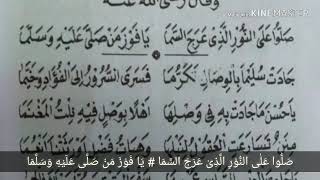 وقال رضي الله عنه
MADE WITH KINEMASTER
صَلُّوا عَلَى النُّورِ الَّذِيْ عَرَجَ السَّمَا يَا فَوْزَ مَنْ صَلَّى عَلَيْهِ وَسَلَّمَا
جَادَتْ سُلَيْمَا بِالْوِصَالِ تَكَرُّمَا فَسَرَى السُّرُورُ إِلَى الْفُؤَادِ وَخَيَّمَا
يَا حُسْنَ مَا جَادَتْ بِهِ فِي وَصْلِهَا أَهْلًا بِوَصْلٍ فِيهِ نِلْتُ الْمَغْنَمَا
صَلُّوا عَلَى النُّورِ الَّذِيْ عَرَجَ السَّمَا # يَا فَوْزَ مَنْ صَلَّى عَلَيْهِ وَسَلَّمَا